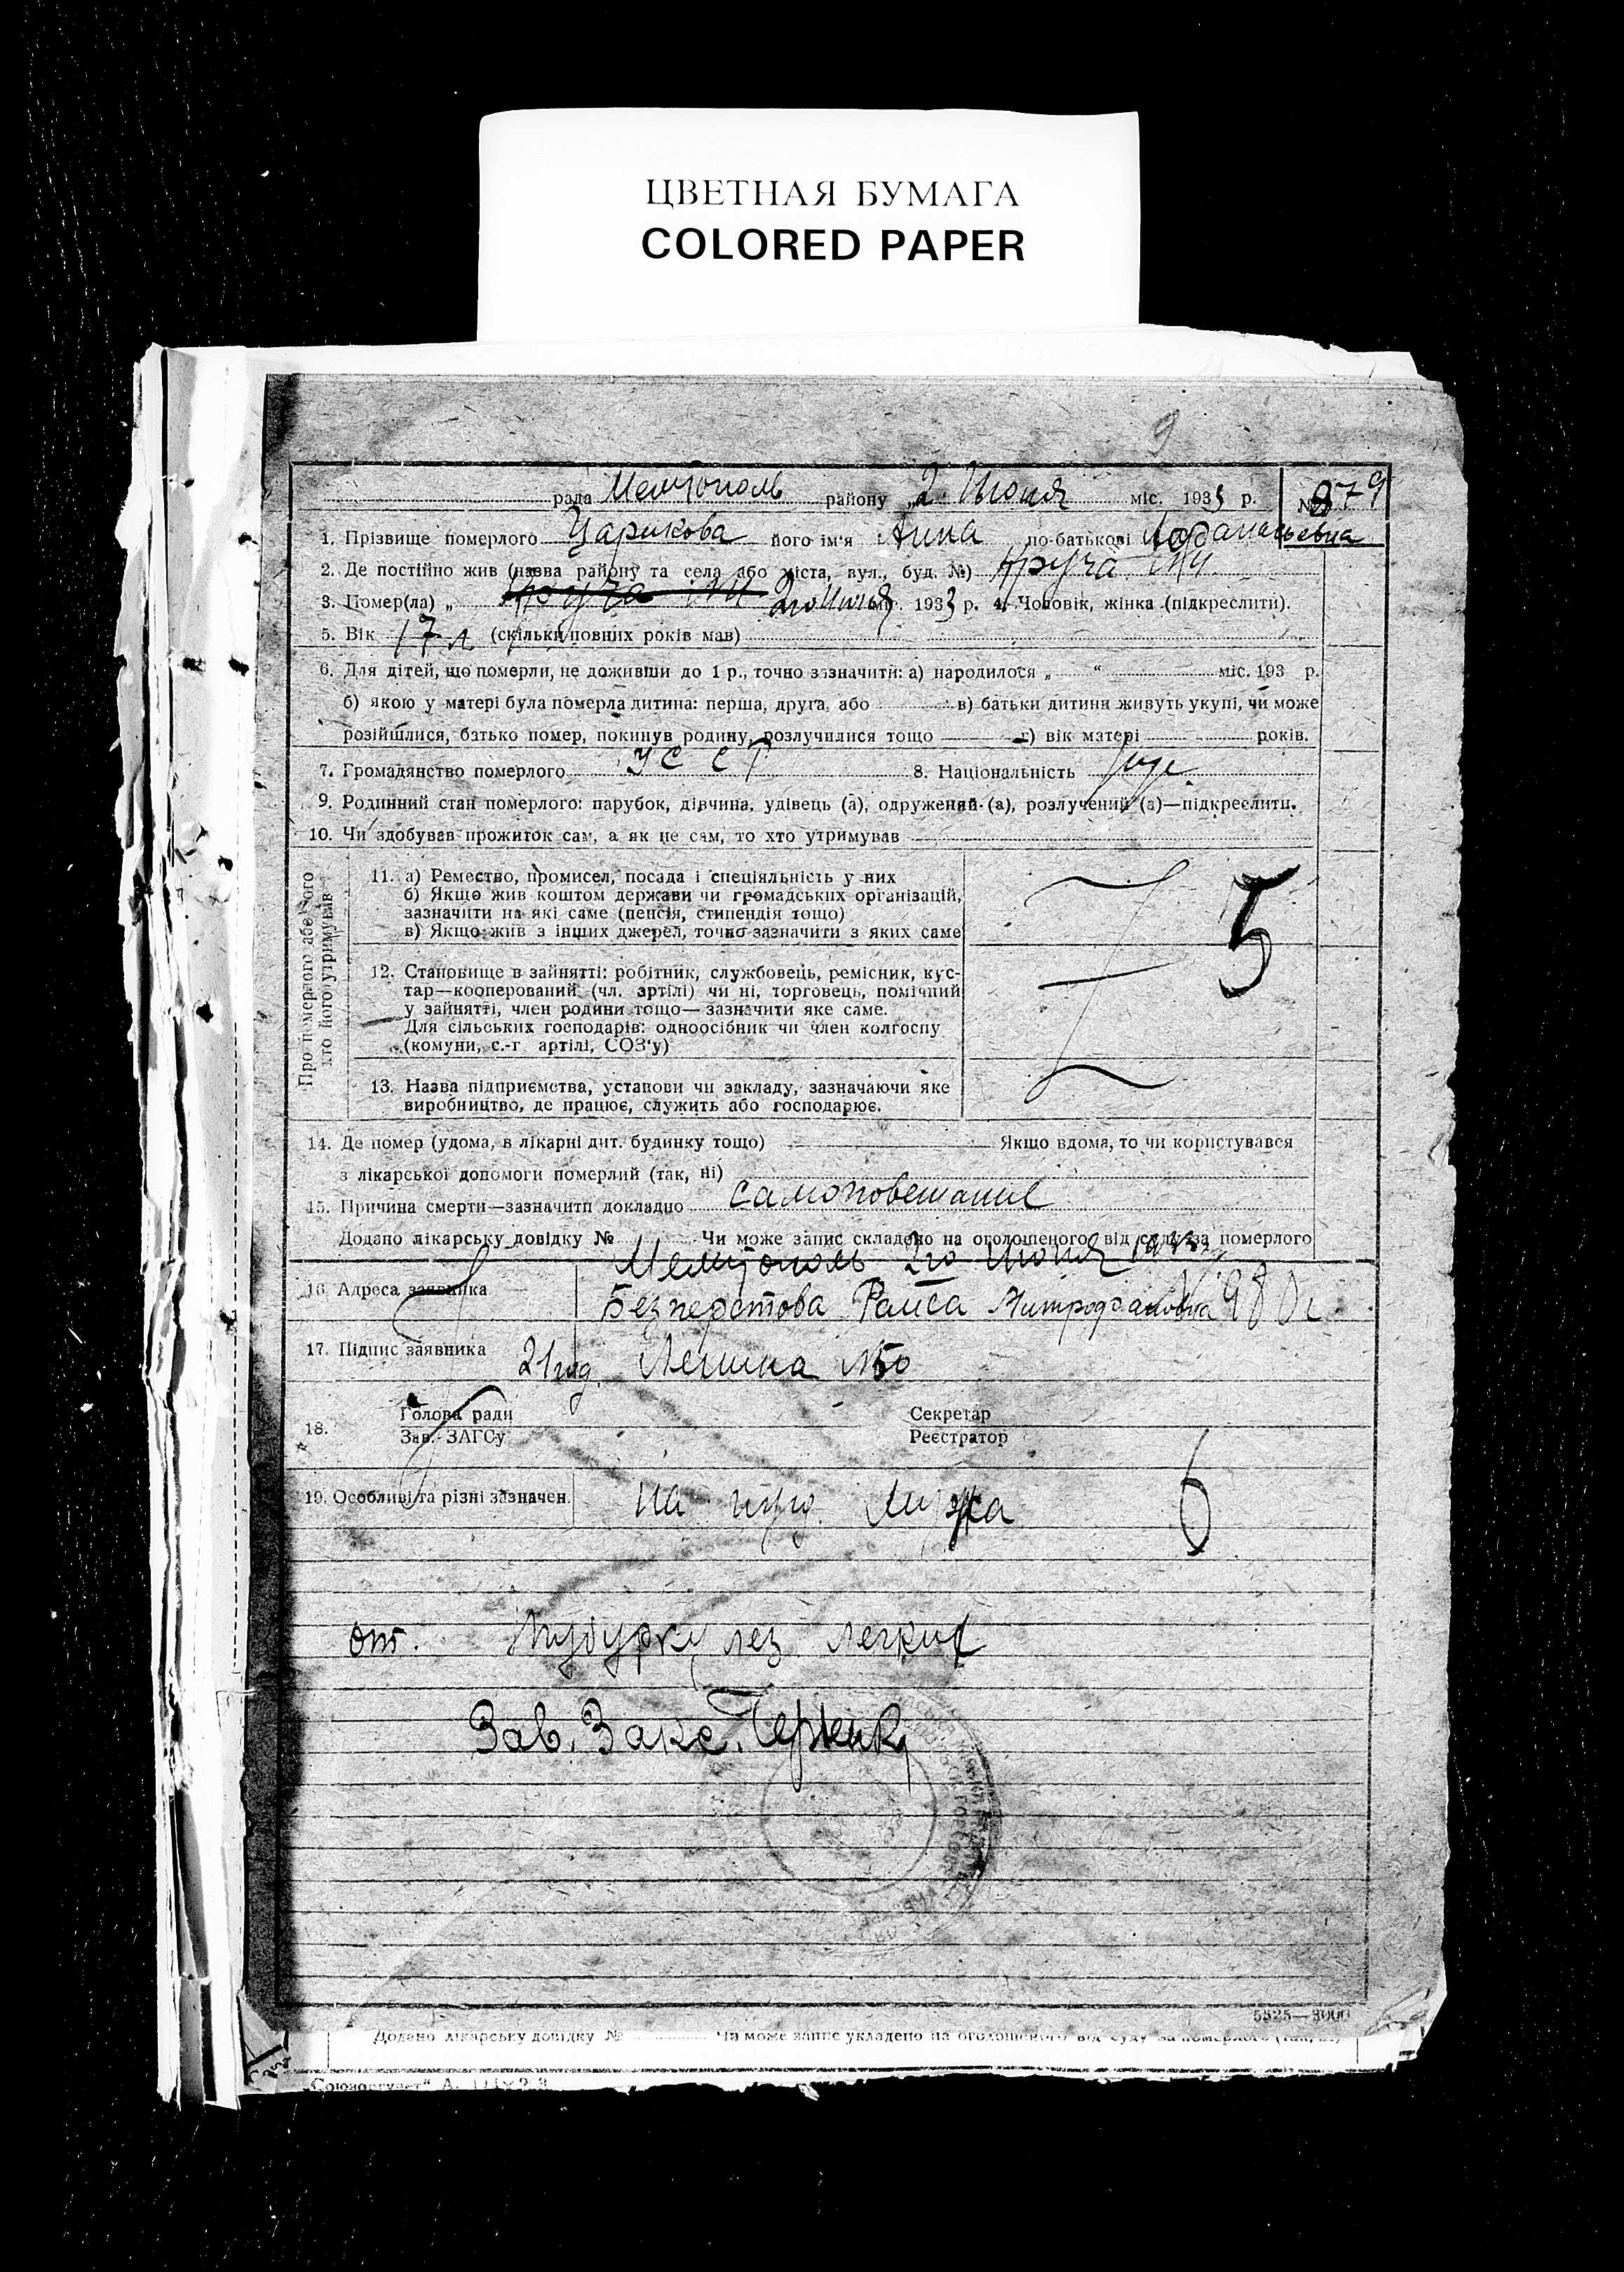 ЦВЕТНАЯ БУМАГА
COLORED PAPER
9
рада Мелітополь району „2 Июня міс. 1933 р. № 879
1. Прізвище померлого Царикова його ім'я Анна по-батькові
2. Де постійно жив (назва району та села або міста, вул., буд. №)
3. Помер(ла) „ 2го Июня міс. 1933 р. 4. Чоловік, жінка (підкреслити).
5. Вік 17 л (скільки повних років мав)
6. Для дітей, що померли, не доживши до 1 р., точно зазначити: а) народилося „ “ міс. 193 р.
б) якою у матері була померла дитина: перша, друга, або в) батьки дитини живуть укупі, чи може
розійшлися, батько помер, покинув родину, розлучилися тощо г) вік матері років.
7. Громадянство померлого УССР 8. Національність
9. Родинний стан померлого: парубок, дівчина, удівець (а), одружений (а), розлучений (а)—підкреслити.
10. Чи здобував прожиток сам, а як не сам, то хто утримував
Про померлого або того
хто його утримував
11. а) Ремество, промисел, посада і спеціяльність у них
б) Якщо жив коштом держави чи громадських організацій,
зазначити на які саме (пенсія, стипендія тощо)
в) Якщо жив з інших джерел, точно зазначити з яких саме
5
12. Становище в зайнятті: робітник, службовець, ремісник, кус-
тар—кооперований (чл. артілі) чи ні, торговець, помічний
у зайнятті, член родини тощо—зазначити яке саме.
Для сільських господарів: одноосібник чи член колгоспу
(комуни, с.-г. артілі, СОЗ'у)
13. Назва підприємства, установи чи закладу, зазначаючи яке
виробництво, де працює, служить або господарює.
14. Де помер (удома, в лікарні дит. будинку тощо) Якщо вдома, то чи користувався
з лікарської допомоги померлий (так, ні)
15. Причина смерти—зазначити докладно самоповешание
Додано лікарську довідку № Чи може запис складено на оголошеного від суду за померлого
Мелітополь 2го Июня 1933
16. Адреса заявника Безперстова Раиса Митрофановна
17. Підпис заявника 21 год. Ленина №50
18. Голова ради Секретар
Зав. ЗАГСу Реєстратор
19. Особливі та різні зазначен. на 6
от. легких
Зав. Загс.
5525—3000
Додано лікарську довідку № Чи може запис укладено на оголошеного від суду за померлого